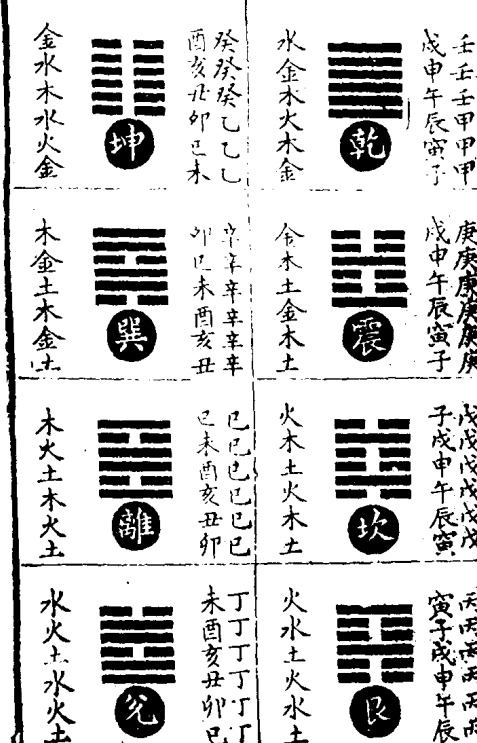 壬壬壬甲甲甲
戌申午辰寅子
乾
水金木火木金
癸癸癸乙乙乙
酉亥丑卯巳未
坤
金水木水火金
庚庚庚庚庚庚
戌申午辰寅子
震
金木土金木土
辛辛辛辛辛辛
卯巳未酉亥丑
巽
木金土木金土
戊戊戊戊戊戊
子戌申午辰寅
坎
火木土火木土
己己己己己己
巳未酉亥丑卯
離
木火土木火土
丙丙丙丙丙丙
寅子戌申午辰
艮
火水土火水土
丁丁丁丁丁丁
未酉亥丑卯巳
兌
水火土水火土